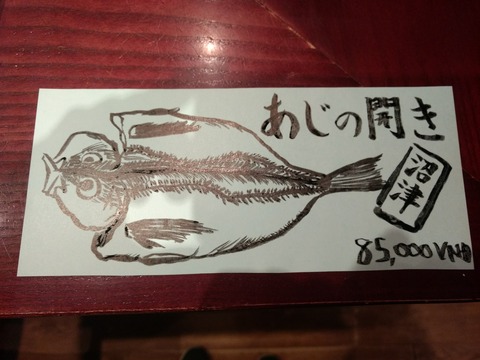 あじの開き
沼津
85,000 VND